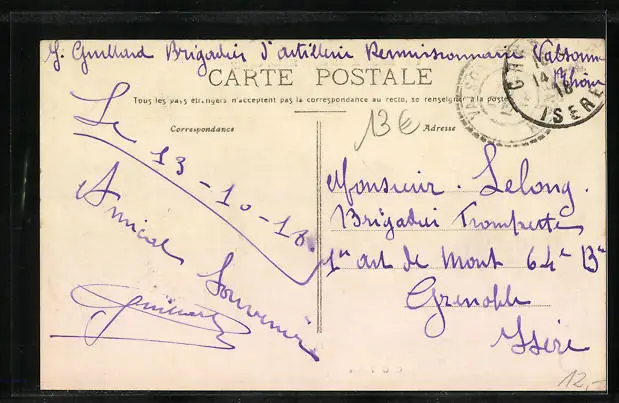 G. Guillard Brigadier d'artillerie Permissionnaire Valsonne
Rhône
CARTE POSTALE
Tous les pays étrangers n'acceptent pas la correspondance au recto, se renseigner à la poste
Correspondance
Adresse
13€
14
18
ISERE
Le 13-10-18
Amical Souvenir
Guillard
Monsieur Lelong
Brigadier Trompette
1er art de Mont 64e Bie
Grenoble
Isère
12,-